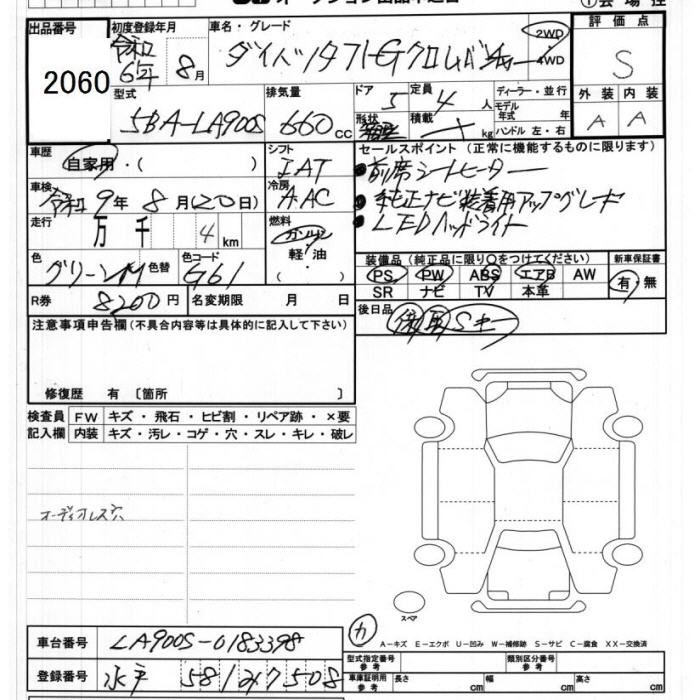 オークション出品申込書
出品番号 2060
初度登録年月 令和6年 8月
車名・グレード ダイハツ タフト G クロムベンチャー
2WD
4WD
評価点 S
外装 A 内装 A
型式 5BA-LA900S
排気量 660 cc
ドア 5
形状
定員 4 人
積載 kg
ディーラー・並行
モデル年式 年式
ハンドル 左・右
車歴 自家用・( )
シフト IAT
セールスポイント (正常に機能するものに限ります)
●前席シートヒーター
●純正ナビ装着用アップグレード
●LEDヘッドライト
車検 令和9年 8月(20日)
冷房 AAC
走行 万 千 4 km
燃料 ガソリン
軽・油
( )
色 グリーンM 色替
色コード G61
装備品 (純正品に限り○をつけてください)
PS PW ABS エアB AW
SR ナビ TV 本革
新車保証書
有・無
R券 8200円
名変期限 月 日
後日品 保 取 Sキー
注意事項申告欄(不具合内容等は具体的に記入して下さい)
修復歴 有 〔箇所 〕
検査員記入欄
FW キズ・飛石・ヒビ割・リペア跡・×要
内装 キズ・汚レ・コゲ・穴・スレ・キレ・破レ
オーディオレス穴
スペア
カ
A-キズ E-エクボ U-凹み W-補修跡 S-サビ C-腐食 XX-交換済
車台番号 LA900S-0183398
登録番号 水戸 581 7508
型式指定番号 参考
類別区分番号 参考
車庫証明用 参考 長さ cm 幅 cm 高さ cm